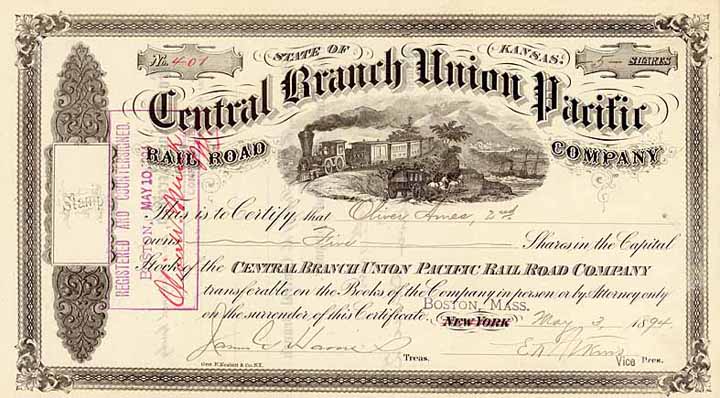 STATE OF KANSAS.
No. 401
5 SHARES
Central Branch Union Pacific
RAIL ROAD COMPANY
Stamp
REGISTERED AND COUNTERSIGNED.
BOSTON, MAY 10
This is to Certify, that Oliver Ames, 2nd
own Five Shares in the Capital
Stock of the CENTRAL BRANCH UNION PACIFIC RAIL ROAD COMPANY
transferable on the Books of the Company in person or by Attorney only
BOSTON, MASS.
on the surrender of this Certificate. NEW YORK May 3, 1894
Treas. Vice Pres.
Geo. F. Nesbitt & Co. N.Y.